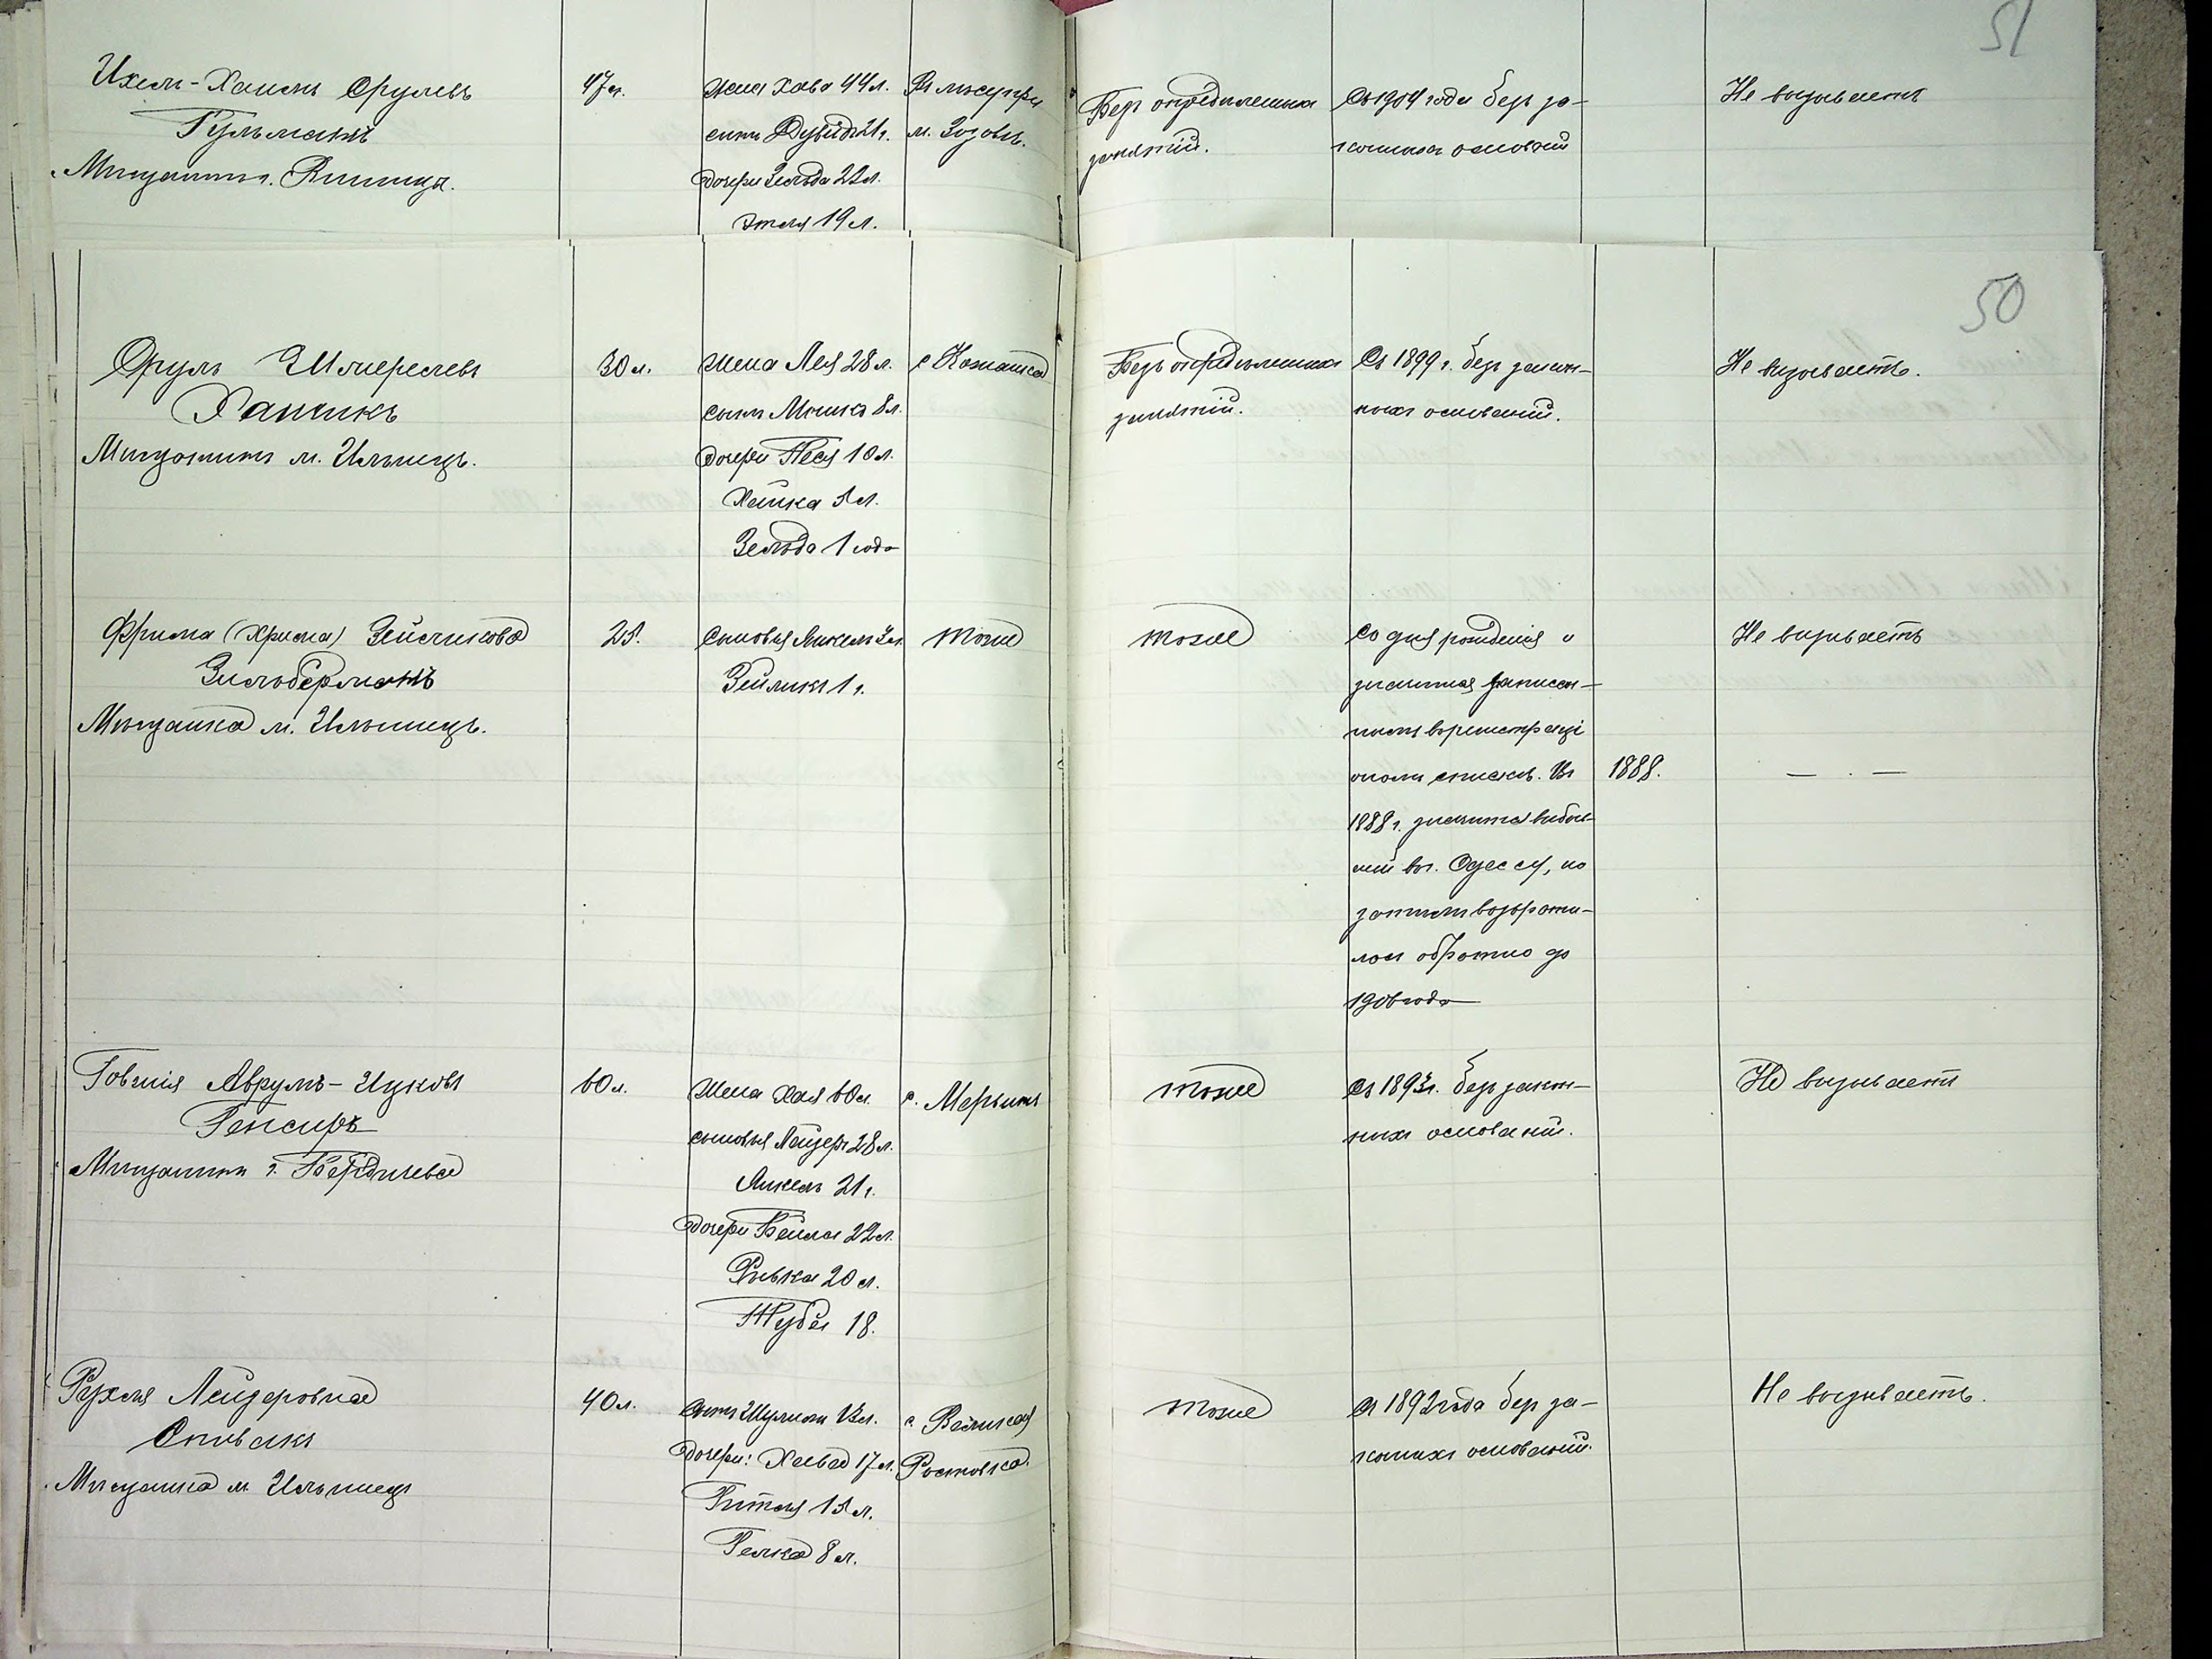 51
Ихель-Хаимъ Срулевъ
Гульманъ
Мѣщанинъ г. Винницы.
47 л.
жена Хава 44 л.
сынъ Дувидъ 21 г.
дочери Зельда 22 л.
Этля 19 л.
м. Зозовъ.
Безъ опредѣленныхъ
занятій.
Съ 1904 года безъ за-
конныхъ основаній
Не вызываетъ
50
Сруль Шмерелевъ
Ханчикъ
Мѣщанинъ м. Ильинецъ.
30 л.
жена Лея 28 л.
сынъ Мошко 8 л.
дочери Песя 10 л.
Хайка 5 л.
Зельда 1 года
с.
Безъ опредѣленныхъ
занятій.
Съ 1899 г. безъ закон-
ныхъ основаній.
Не вызываетъ.
Фрима (Хрима)
Зильберманъ
Мѣщанка м. Ильинецъ.
25.
Сыновья Янкель 3 л.
Зейликъ 1 г.
тоже
тоже
Со дня рожденія и
значится записан-
нымъ въ регистраці
онномъ списке. Въ
1888 г. значится выбыв-
шей въ г. Одессу, но
затѣмъ возврати-
лась обратно до
1906 года
1888.
Не вызываетъ
— . —
Товшія Аврумъ-Ицковъ
Генсиръ
Мѣщанинъ г. Бердичева
60 л.
Жена Хая 60 л.
сыновья Лейзеръ 28 л.
Янкель 21 г.
дочери Бейла 22 л.
Ривка 20 л.
Туба 18.
с. Мервинъ
тоже
Съ 1893 г. безъ закон-
ныхъ основаній.
Не вызываетъ
Рухля Лейзеровна
Спивакъ
Мѣщанка м. Ильинецъ
40 л.
сынъ Шулимъ 13 л.
дочери: Хава 17 л.
Гитля 15 л.
Гелка 8 л.
с. Великая
Ростовка.
тоже
Съ 1892 года безъ за-
конныхъ основаній.
Не вызываетъ.